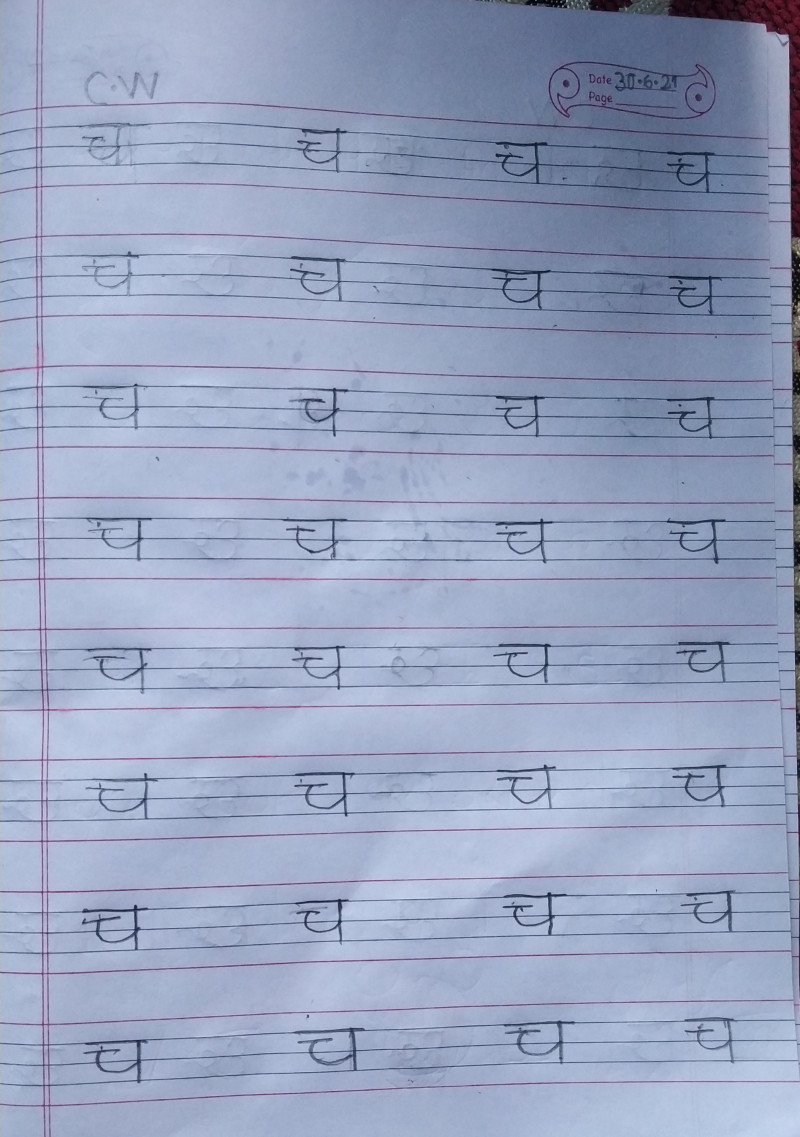 C.W
Date 30.6.21
Page
च च च च
च च च च
च च च च
च च च च
च च च च
च च च च
च च च च
च च च च